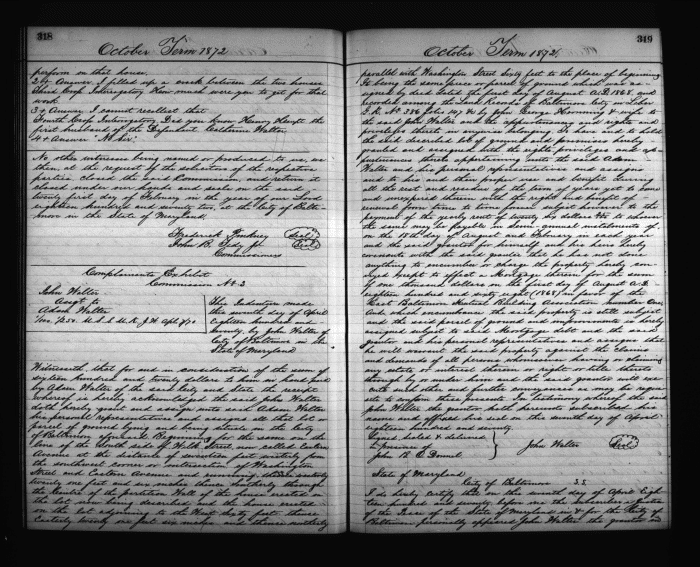 318
October Term 1872
perform on that house.
2nd Answer. I filled up a crack between the two houses
Third Cross Interrogatory How much were you to get for this
work
3rd Answer I cannot recollect that
Fourth Cross Interrogatory. Did you know Henry
first husband of the Defendant Catherine Walter
4th Answer "No Sir"
No other witnesses being named or produced to us, we
then, at the request of the solicitors of the respective
parties closed the said Commission, and return it
closed under our hands and seals on this
twenty first day of February in the year of our Lord
eighteen hundred and seventy two, at the City of Balti-
more in the State of Maryland.
Frederick (Seal)
John R. Jr. (Seal)
Commissioners
Complainants Exhibit
Commission No. 3
John Walter
Assgt to
Adam Walter
This Indenture made
this seventh day of April
eighteen hundred and
seventy by John Walter of
City of Baltimore in the
State of Maryland
Witnesseth that for and in consideration of the sum of
sixteen hundred and twenty dollars to him in hand paid
by Adam Walter of the same City and State the receipt
whereof is hereby acknowledged the said John Walter
doth hereby grant and assign unto said Adam Walter
his personal representatives and assigns All that lot or
parcel of ground lying and being situate in the City
of Baltimore aforesaid Beginning for the same on the
line of the South side of Wilk Street, now called Eastern
Avenue at the distance of seventeen feet westerly from
the southwest corner or intersection of Washington
Street and Eastern Avenue and running thence westerly
twenty one feet and six inches thence southerly through
the Centre of the partition Wall of the house erected on
the lot now being described and the house erected
on the lot adjoining to the West Sixty feet thence
Easterly twenty one feet six inches and thence northerly
319
October Term 1872.
parallel with Washington Street Sixty feet to the place of beginning
It being the same piece or parcel of ground which was as-
signed by deed dated the first day of August A.D. 1868. and
recorded among the Land Records of Baltimore City in Liber
No. 386 folio by John George and wife to
the said John Walter with the appurtenances and rights and
privileges thereto in anywise belonging. To have and to hold
the said described lot of ground and premises hereby
granted and assigned with the rights privileges and ap-
purtenances thereto appertaining unto the said Adam
Walter and his personal representatives and assigns
and to his and their proper use and benefit during
all the rest and residue of the term of years yet to come
and unexpired therein with the right and benefit of
renewal from time to time forever subject however to the
payment of the yearly rent of twenty six dollars to
the same may be payable in Semi annual instalments of
on the 18th day of August and February in each year
and the said grantor for himself and his heirs hereby
covenants with the said grantee that he has not done
anything to encumber or charge the property hereby con-
veyed except to effect a Mortgage thereon for the sum
of One thousand dollars on the first day of August A.D.
eighteen hundred and sixty eight (1868) in favor of the
East Baltimore Mutual Building Association Number One
And which encumbrance the said property is still subject
and the said parcel of ground and improvements is hereby
assigned subject to said Mortgage debt and the said
grantor and his personal representatives and assigns that
he will warrant the said property against the claims
and demands of all persons whomsoever having or claiming
any estate or interest therein or right or title thereto
through by or under him and the said grantor
such other and further conveyances as may be requi-
site to confirm these presents. In testimony whereof the said
John Walter the grantor hath hereunto subscribed his
name and affixed his seal on this seventh day of April
eighteen hundred and seventy.
Signed Sealed & delivered
in presence of
John Walter (Seal)
John R. D.
State of Maryland
City of Baltimore S.S.
I do hereby certify that on this seventh day of April Eigh-
teen hundred and seventy before me the subscriber a Justice
of the Peace of the State of Maryland in & for the City of
Baltimore personally appeared John Walter the grantor in